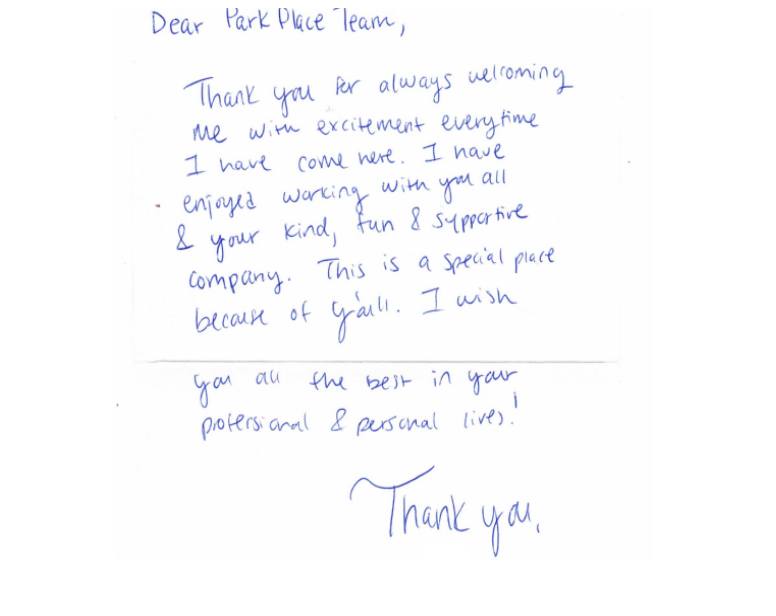 Dear Park Place Team,
Thank you for always welcoming
me with excitement everytime
I have come here. I have
enjoyed working with you all
& your kind, fun & supportive
company. This is a special place
because of y'all. I wish
you all the best in your
professional & personal lives!
Thank you,